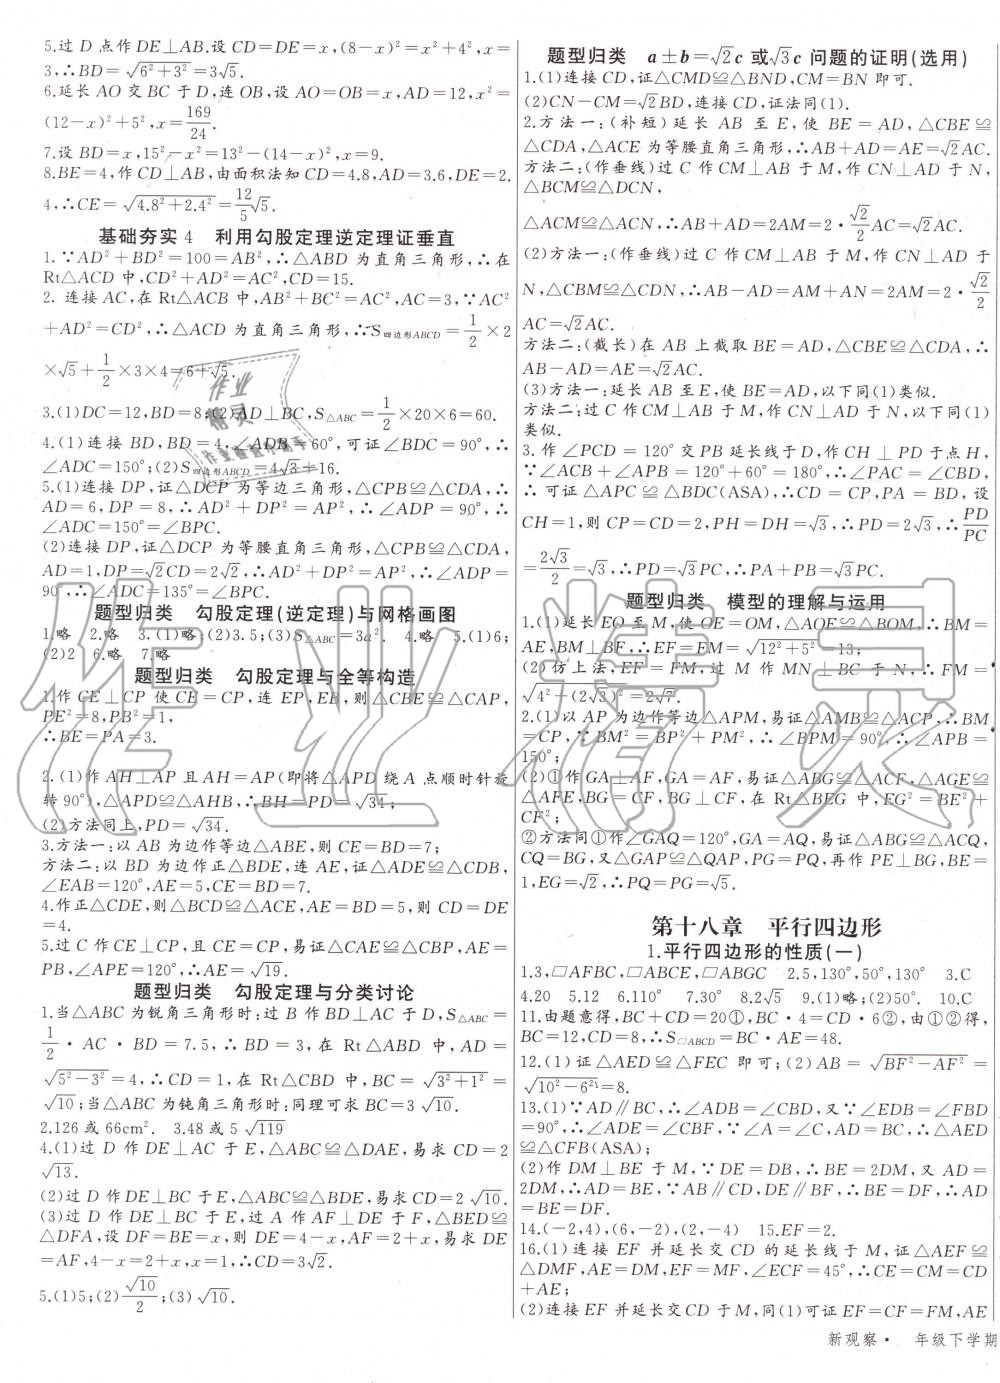 5.过 D 点作 DE⊥AB.设 CD=DE=x,(8-x)²=x²+4²,x=
3,∴BD=√(6²+3²)=3√5.
6.延长 AO 交 BC 于 D,连 OB,设 AO=OB=x,AD=12,x²=
(12-x)²+5²,x=169/24.
7.设 BD=x,15²-x²=13²-(14-x)²,x=9.
8.BE=4,作 CD⊥AB,由面积法知 CD=4.8,AD=3.6,DE=2.
4,∴CE=√(4.8²+2.4²)=12/5√5.
基础夯实 4 利用勾股定理逆定理证垂直
1.∵AD²+BD²=100=AB²,∴△ABD 为直角三角形,∴在
Rt△ACD 中,CD²+AD²=AC²,CD=15.
2. 连接 AC,在 Rt△ACB 中,AB²+BC²=AC²,AC=3,∵AC²
+AD²=CD²,∴△ACD 为直角三角形,∴S四边形ABCD=1/2×2
×√5+1/2×3×4=6+√5.
3.(1)DC=12,BD=8;(2)AD⊥BC,S△ABC=1/2×20×6=60.
4.(1)连接 BD,BD=4,∠ADB=60°,可证∠BDC=90°,∴
∠ADC=150°;(2)S四边形ABCD=4√3+16.
5.(1)连接 DP,证△DCP 为等边三角形,△CPB≌△CDA,∴
AD=6,DP=8,∴AD²+DP²=AP²,∴∠ADP=90°,∴
∠ADC=150°=∠BPC.
(2)连接 DP,证△DCP 为等腰直角三角形,△CPB≌△CDA,
AD=1,DP=√2CD=2√2,∴AD²+DP²=AP²,∴∠ADP=
90°,∴∠ADC=135°=∠BPC.
题型归类 勾股定理(逆定理)与网格画图
1.略 2.略 3.(1)略;(2)3.5;(3)S△ABC=3a². 4.略 5.(1)6;
(2)2 6.略 7.略
题型归类 勾股定理与全等构造
1.作 CE⊥CP 使 CE=CP,连 EP,EB,则△CBE≌△CAP,
PE²=8,PB²=1,
∴BE=PA=3.
2.(1)作 AH⊥AP 且 AH=AP(即将△APD 绕 A 点顺时针旋
转 90°),△APD≌△AHB,∴BH=PD=√34;
(2)方法同上,PD=√34.
3.方法一:以 AB 为边作等边△ABE,则 CE=BD=7;
方法二:以 BD 为边作正△BDE,连 AE,证△ADE≌△CDB,
∠EAB=120°,AE=5,CE=BD=7.
4.作正△CDE,则△BCD≌△ACE,AE=BD=5,则 CD=DE
=4.
5.过 C 作 CE⊥CP,且 CE=CP,易证△CAE≌△CBP,AE=
PB,∠APE=120°,∴AE=√19.
题型归类 勾股定理与分类讨论
1.当△ABC 为锐角三角形时:过 B 作 BD⊥AC 于 D,S△ABC=
1/2·AC·BD=7.5,∴BD=3,在 Rt△ABD 中,AD=
√(5²-3²)=4,∴CD=1,在 Rt△CBD 中,BC=√(3²+1²)=
√10;当△ABC 为钝角三角形时:同理可求 BC=3√10.
2.126 或 66cm². 3.48 或 5√119
4.(1)过 D 作 DE⊥AC 于 E,△ABC≌△DAE,易求 CD=2
√13.
(2)过 D 作 DE⊥BC 于 E,△ABC≌△BDE,易求 CD=2√10.
(3)过 D 作 DE⊥BC 于 E,过 A 作 AF⊥DE 于 F,△BED≌
△DFA,设 DF=BE=x,则 DE=4-x,AF=2+x,易求 DE
=AF,4-x=2+x,x=1,∴CD=3√2.
5.(1)5;(2)√10/2;(3)√10.
题型归类 a±b=√2c 或√3c 问题的证明(选用)
1.(1)连接 CD,证△CMD≌△BND,CM=BN 即可.
(2)CN-CM=√2BD,连接 CD,证法同(1).
2.方法一:(补短)延长 AB 至 E,使 BE=AD,△CBE≌
△CDA,△ACE 为等腰直角三角形,∴AB+AD=AE=√2AC.
方法二:(作垂线)过 C 作 CM⊥AB 于 M,作 CN⊥AD 于 N,
△BCM≌△DCN,
△ACM≌△ACN,∴AB+AD=2AM=2·√2/2AC=√2AC.
(2)方法一:(作垂线)过 C 作 CM⊥AB 于 M,作 CN⊥AD 于
N,△CBM≌△CDN,∴AB-AD=AM+AN=2AM=2·√2/2
AC=√2AC.
方法二:(截长)在 AB 上截取 BE=AD,△CBE≌△CDA,∴
AB-AD=AE=√2AC.
(3)方法一:延长 AB 至 E,使 BE=AD,以下同(1)类似.
方法二:过 C 作 CM⊥AB 于 M,作 CN⊥AD 于 N,以下同(1)
类似.
3.作∠PCD=120°交 PB 延长线于 D,作 CH⊥PD 于点 H,
∵∠ACB+∠APB=120°+60°=180°,∴∠PAC=∠CBD,
∴可证△APC≌△BDC(ASA),∴CD=CP,PA=BD,设
CH=1,则 CP=CD=2,PH=DH=√3,∴PD=2√3,∴PD/PC
=2√3/2=√3,∴PD=√3PC,∴PA+PB=√3PC.
题型归类 模型的理解与运用
1.(1)延长 EO 至 M,使 OE=OM,△AOE≌△BOM,∴BM=
AE,BM⊥BF,∴EF=FM=√(12²+5²)=13;
(2)仿上法,EF=FM,过 M 作 MN⊥BC 于 N,∴FM=
√(4²+(2√3)²)=2√7.
2.(1)以 AP 为边作等边△APM,易证△AMB≌△ACP,∴BM
=CP,∵BM²=BP²+PM²,∴∠BPM=90°,∴∠APB=
150°;
(2)①作 GA⊥AF,GA=AF,易证△ABG≌△ACF,△AGE≌
△AFE,BG=CF,BG⊥CF,在 Rt△BEG 中,EG²=BE²+
CF²;
②方法同①作∠GAQ=120°,GA=AQ,易证△ABG≌△ACQ,
CQ=BG,又△GAP≌△QAP,PG=PQ,再作 PE⊥BG,BE=
1,EG=√2,∴PQ=PG=√5.
第十八章 平行四边形
1.平行四边形的性质(一)
1.3,▱AFBC,▱ABCE,▱ABGC 2.5,130°,50°,130° 3.C
4.20 5.12 6.110° 7.30° 8.2√5 9.(1)略;(2)50°. 10.C
11.由题意得,BC+CD=20①,BC·4=CD·6②,由①②得,
BC=12,CD=8,∴S▱ABCD=BC·AE=48.
12.(1)证△AED≌△FEC 即可;(2)AB=√(BF²-AF²)=
√(10²-6²)=8.
13.(1)∵AD∥BC,∴∠ADB=∠CBD,又∵∠EDB=∠FBD
=90°,∴∠ADE=∠CBF,∵∠A=∠C,AD=BC,∴△AED
≌△CFB(ASA);
(2)作 DM⊥BE 于 M,∵DE=DB,∴BE=2DM,又 AD=
2DM,∴AD=BE,∵AB∥CD,DE∥BF,∴BE=DF,∴AD
=BE=DF.
14.(-2,4),(6,-2),(2,-4) 15.EF=2.
16.(1)连接 EF 并延长交 CD 的延长线于 M,证△AEF≌
△DMF,AE=DM,EF=MF,∠ECF=45°,∴CE=CM=CD
+AE;
(2)连接 EF 并延长交 CD 于 M,同(1)可证 EF=CF=FM,AE
新观察· 年级下学期
作业精灵